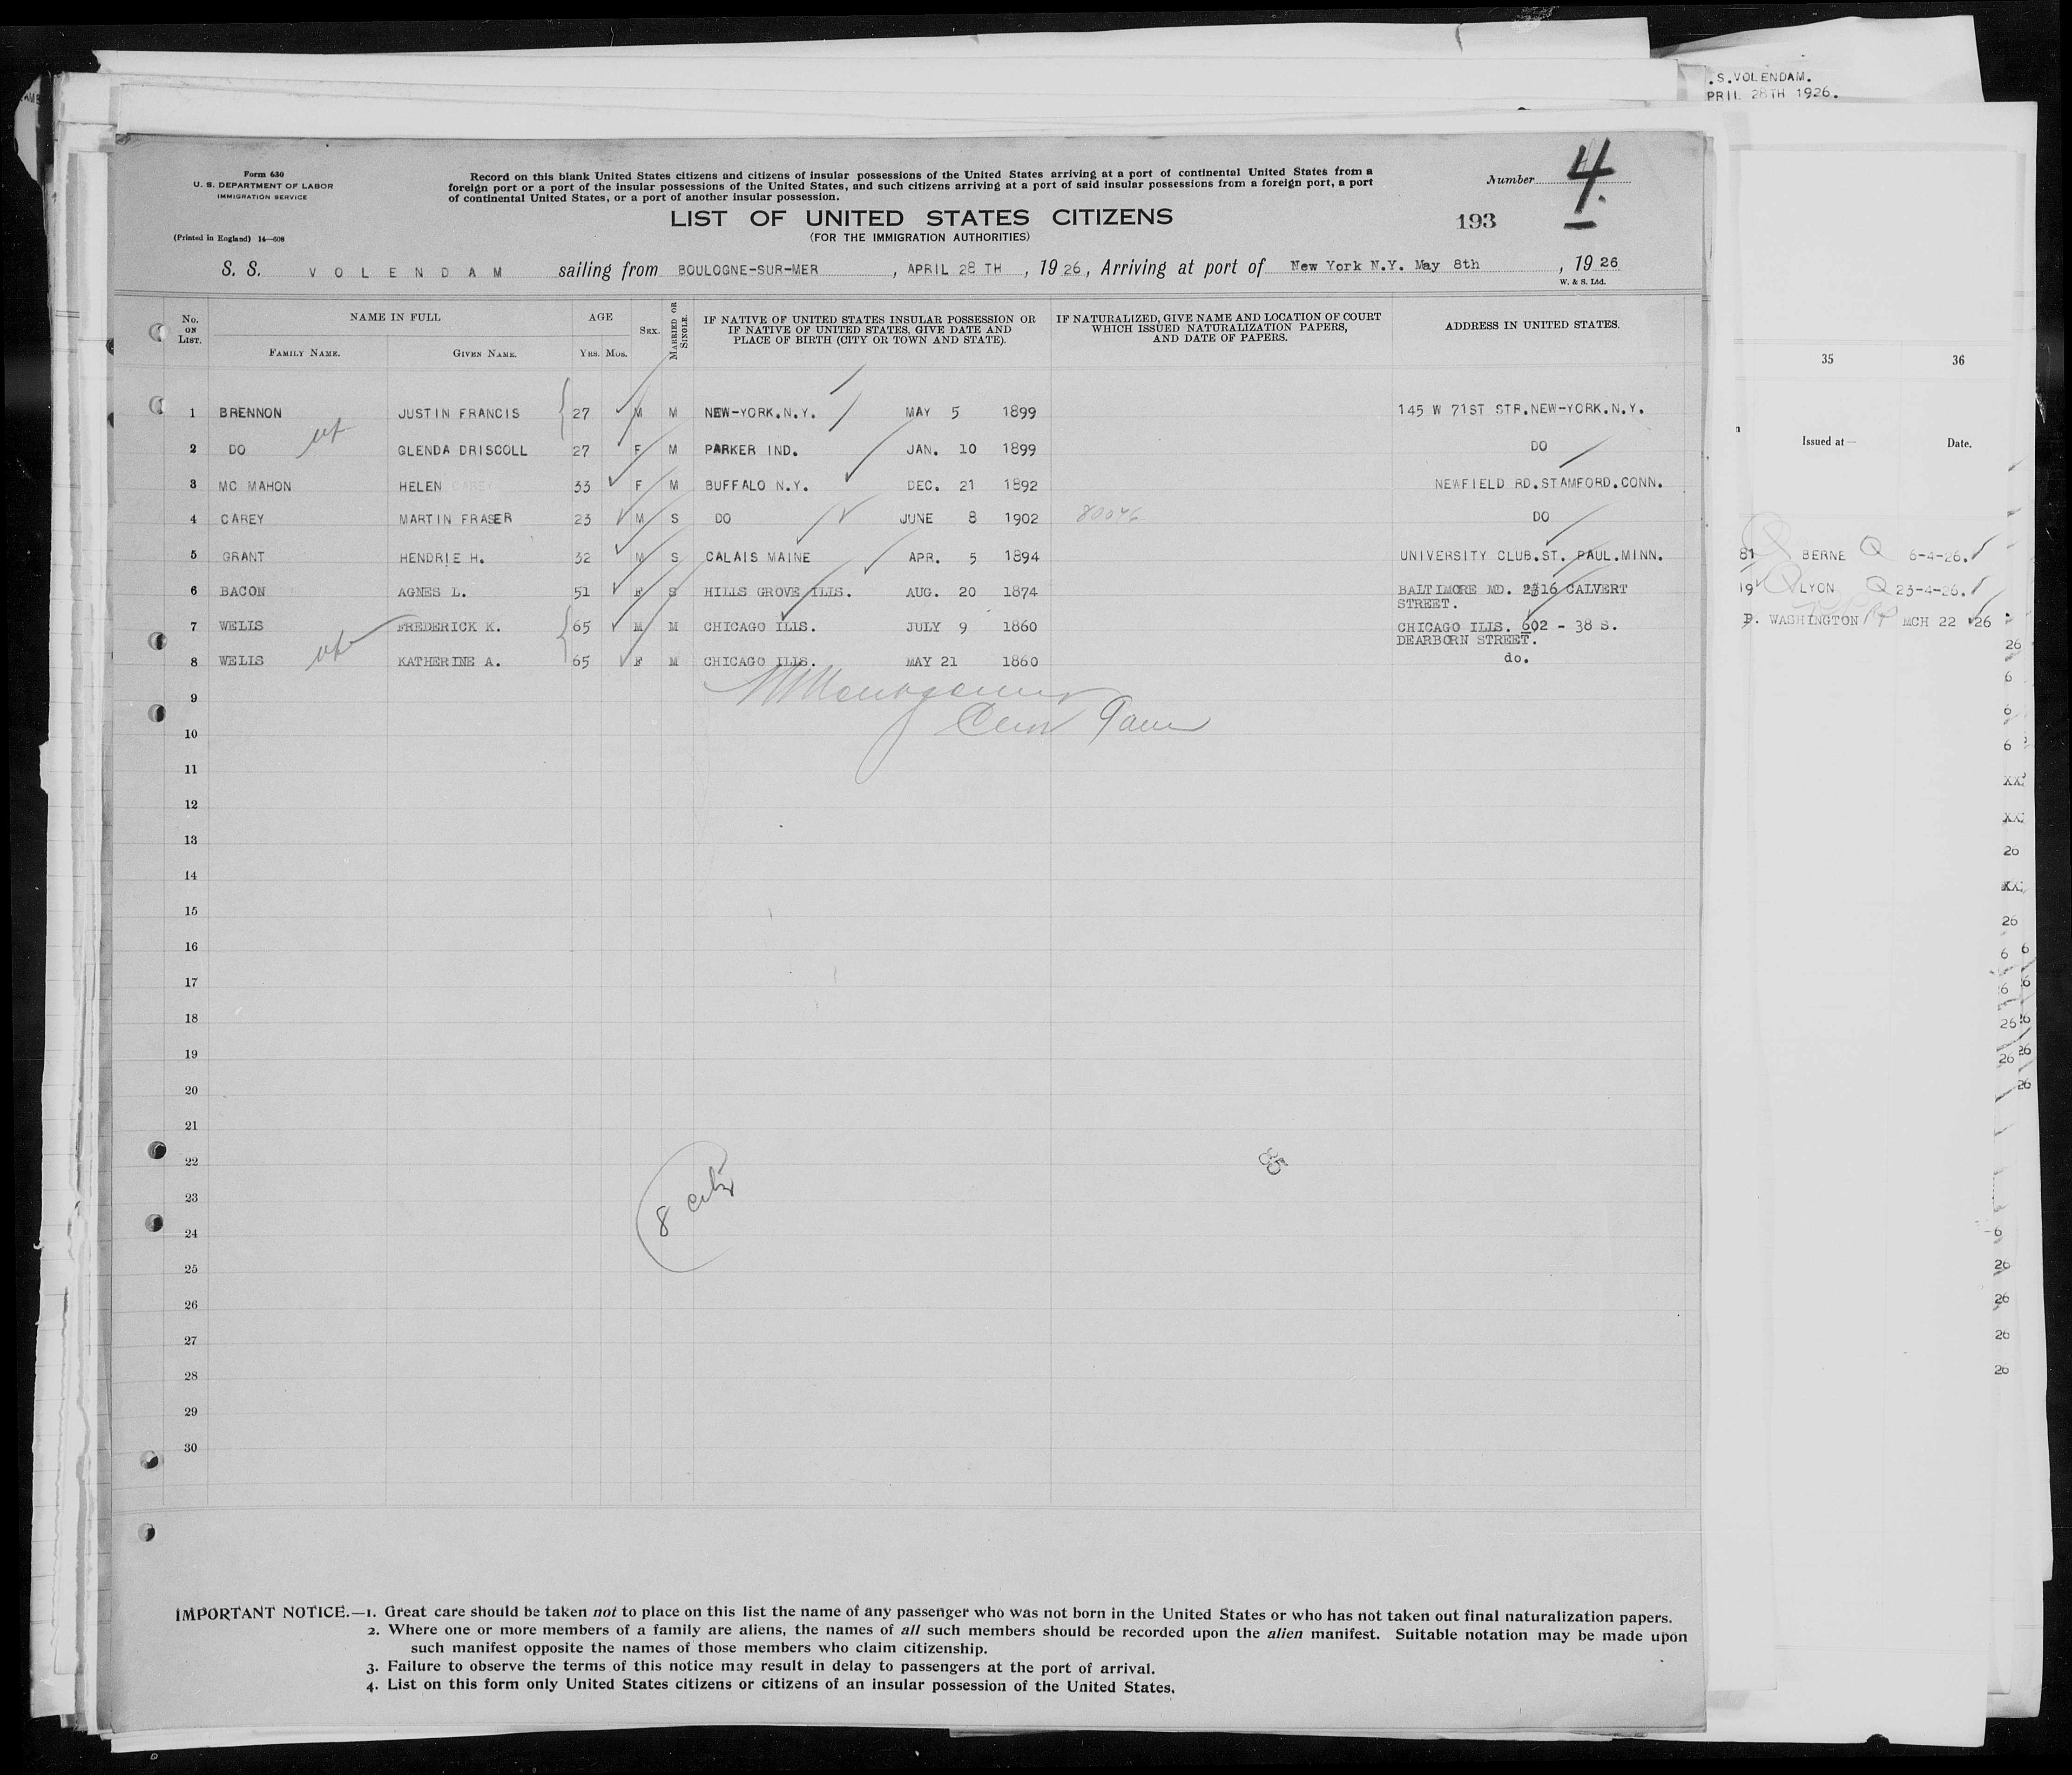 .S.VOLENDAM.
PRIL 28TH 1926.
Form 630
U. S. DEPARTMENT OF LABOR
IMMIGRATION SERVICE
(Printed in England) 14—608
Record on this blank United States citizens and citizens of insular possessions of the United States arriving at a port of continental United States from a
foreign port or a port of the insular possessions of the United States, and such citizens arriving at a port of said insular possessions from a foreign port, a port
of continental United States, or a port of another insular possession.
Number 4.
LIST OF UNITED STATES CITIZENS
(FOR THE IMMIGRATION AUTHORITIES)
193
S. S. VOLENDAM sailing from BOULOGNE-SUR-MER, APRIL 28 TH, 1926, Arriving at port of New York N.Y. May 8th, 1926
W. & S. Ltd.
No. ON LIST.
NAME IN FULL
FAMILY NAME.
GIVEN NAME.
AGE
YRS. MOS.
SEX.
MARRIED OR SINGLE.
IF NATIVE OF UNITED STATES INSULAR POSSESSION OR
IF NATIVE OF UNITED STATES, GIVE DATE AND
PLACE OF BIRTH (CITY OR TOWN AND STATE).
IF NATURALIZED, GIVE NAME AND LOCATION OF COURT
WHICH ISSUED NATURALIZATION PAPERS,
AND DATE OF PAPERS.
ADDRESS IN UNITED STATES.
1 BRENNON JUSTIN FRANCIS 27 M M NEW-YORK.N.Y. MAY 5 1899 145 W 71ST STR.NEW-YORK.N.Y.
2 DO GLENDA DRISCOLL 27 F M PARKER IND. JAN. 10 1899 DO
3 MC MAHON HELEN CAREY 33 F M BUFFALO N.Y. DEC. 21 1892 NEWFIELD RD.STAMFORD.CONN.
4 CAREY MARTIN FRASER 23 M S DO JUNE 8 1902 80046 DO
5 GRANT HENDRIE H. 32 M S CALAIS MAINE APR. 5 1894 UNIVERSITY CLUB.ST. PAUL.MINN.
6 BACON AGNES L. 51 F S HILLS GROVE ILLS. AUG. 20 1874 BALTIMORE MD. 2316 CALVERT
STREET.
7 WELLS FREDERICK K. 65 M M CHICAGO ILLS. JULY 9 1860 CHICAGO ILLS. 602 - 38 S.
DEARBORN STREET.
8 WELLS KATHERINE A. 65 F M CHICAGO ILLS. MAY 21 1860 do.
9
10
11
12
13
14
15
16
17
18
19
20
21
22
23
24
25
26
27
28
29
30
8
85
IMPORTANT NOTICE.—1. Great care should be taken not to place on this list the name of any passenger who was not born in the United States or who has not taken out final naturalization papers.
2. Where one or more members of a family are aliens, the names of all such members should be recorded upon the alien manifest. Suitable notation may be made upon
such manifest opposite the names of those members who claim citizenship.
3. Failure to observe the terms of this notice may result in delay to passengers at the port of arrival.
4. List on this form only United States citizens or citizens of an insular possession of the United States.
35 36
Issued at— Date.
81 BERNE 6-4-26.
19 LYON 23-4-26.
D. WASHINGTON MCH 22 26